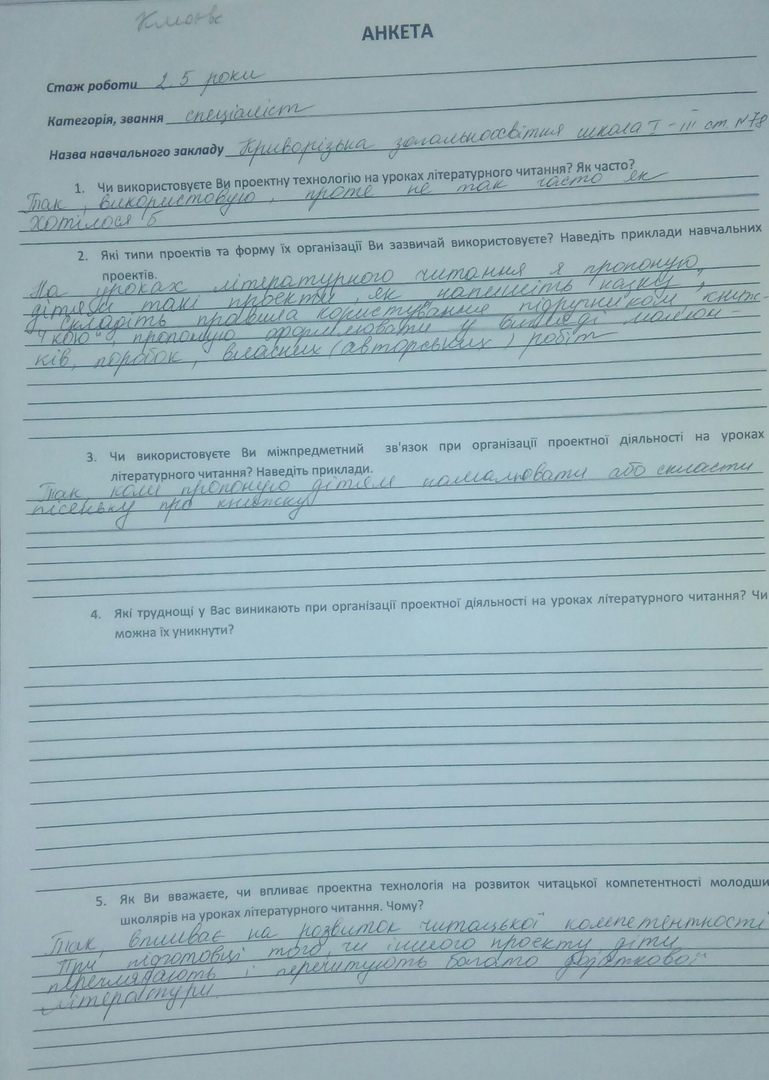 АНКЕТА
Стаж роботи 2,5 роки
Категорія, звання спеціаліст
Назва навчального закладу Криворізька загальноосвітня школа І-ІІІ ст. №78
1. Чи використовуєте Ви проектну технологію на уроках літературного читання? Як часто?
Так, використовую, проте не так часто як
хотілося б
2. Які типи проектів та форму їх організації Ви зазвичай використовуєте? Наведіть приклади навчальних
проектів.
На уроках літературного читання я пропоную
дітям такі проекти, як "напишіть казку",
"складіть правила користування підручником, книж-
кою", пропоную оформлювати у вигляді малюн-
ків, поробок, власних (авторських) робіт
3. Чи використовуєте Ви міжпредметний зв'язок при організації проектної діяльності на уроках
літературного читання? Наведіть приклади.
Так, коли пропоную дітям намалювати або скласти
пісеньку про книжку
4. Які труднощі у Вас виникають при організації проектної діяльності на уроках літературного читання? Чи
можна їх уникнути?
5. Як Ви вважаєте, чи впливає проектна технологія на розвиток читацької компетентності молодши
школярів на уроках літературного читання. Чому?
Так, впливає на розвиток читацької компетентності
При підготовці того, чи іншого проекту діти
переглядають і перечитують багато додаткової
літератури.